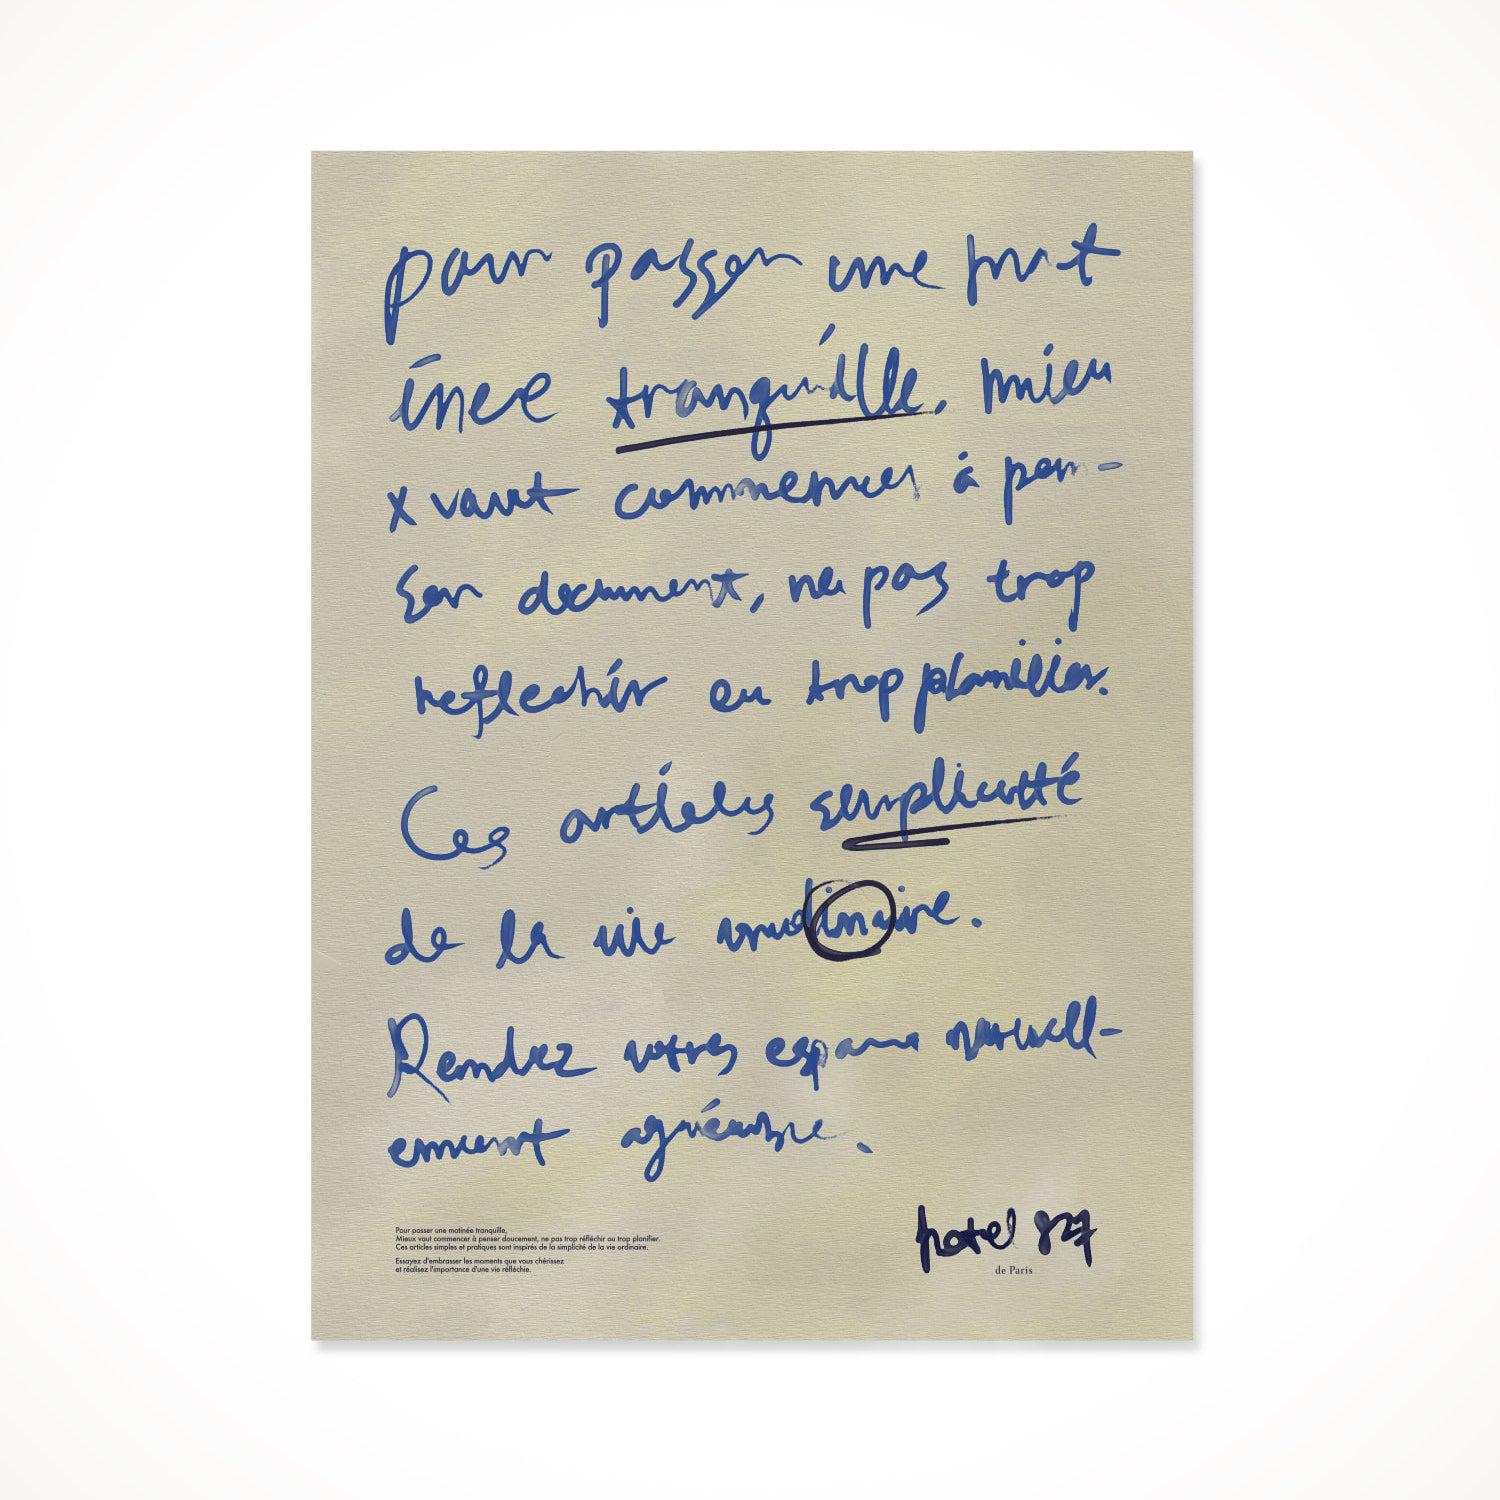 pour passer une mat
inée tranquille, mieu
x vaut commencer à pen-
ser doucement, ne pas trop
réflechir ou trop planifier.
Ces articles simplicité
de la vie ordinaire.
Rendez votres espace naturell-
ement agréable.
Pour passer une matinée tranquille,
Mieux vaut commencer à penser doucement, ne pas trop réfléchir ou trop planifier.
Ces articles simples et pratiques sont inspirés de la simplicité de la vie ordinaire.
Essayez d'embrasser les moments que vous chérissez
et réalisez l'importance d'une vie réfléchie.
hotel 827
de Paris